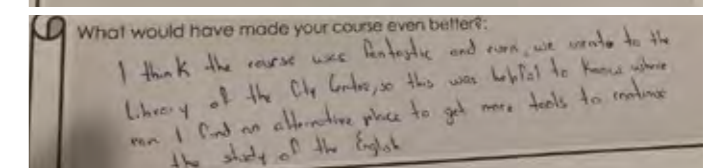 What would have made your course even better?:
I think the course was fantastic and even, we wento to the
Library of the City Centre, so this was helpful to know where
can I find an alternative place to get more tools to continue
the study of the English